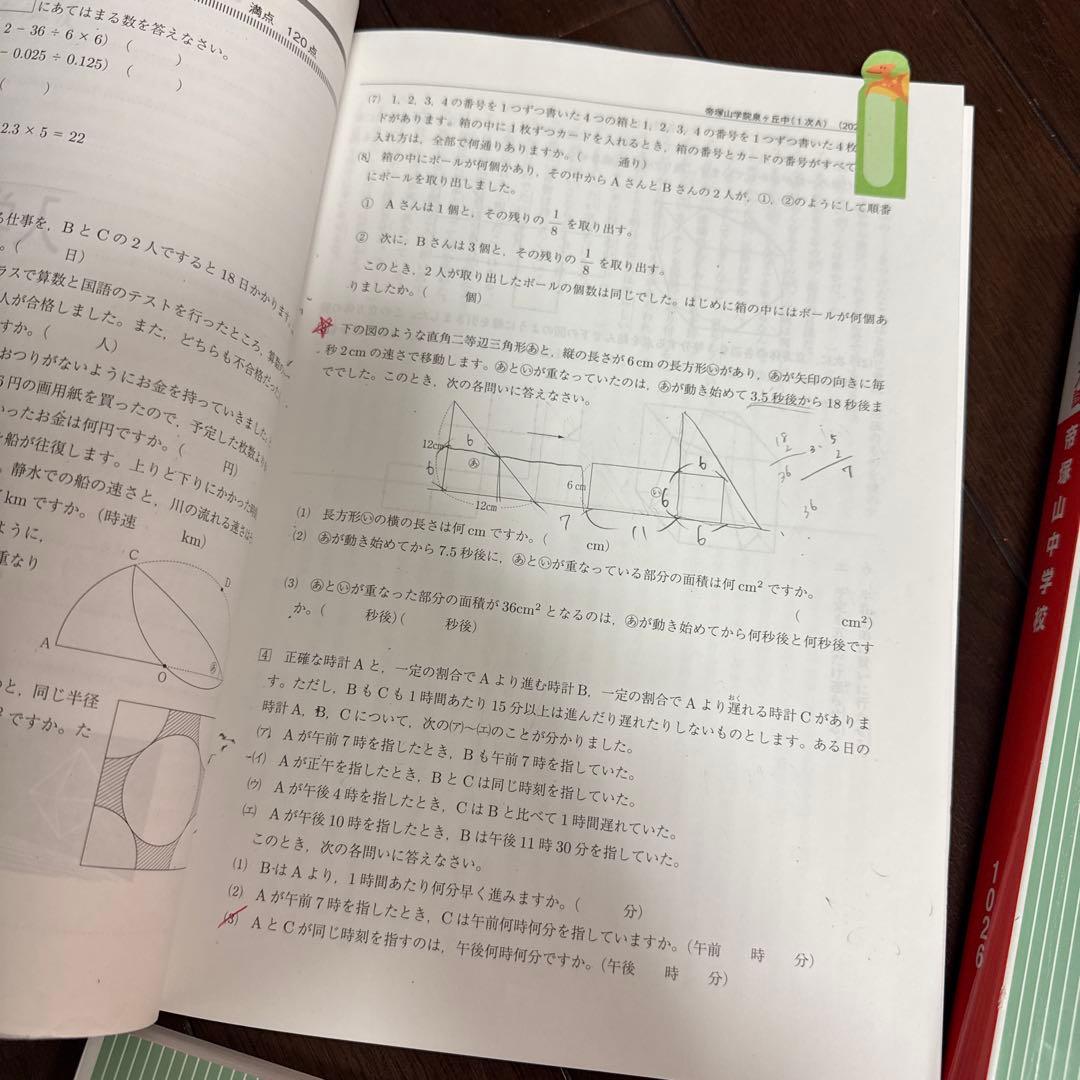 満点 120点
にあてはまる数を答えなさい。
2－36÷6×6) (　　　)
－0.025÷0.125) (　　　)
(　　　)
2.3×5＝22
仕事を，BとCの2人ですると18日かかります
。(　　　日)
ラスで算数と国語のテストを行ったところ，算数
人が合格しました。また，どちらも不合格だった
すか。(　　　人)
おつりがないようにお金を持っていきました。
円の画用紙を買ったので，予定した枚数より
ったお金は何円ですか。(　　　円)
船が往復します。上りと下りにかかった時間
。静水での船の速さと，川の流れる速さは
kmですか。(時速　　　km)
ように，
重なり
C
D
A
O
あ
と，同じ半径
ですか。た
帝塚山学院泉ヶ丘中(1次A) (202
(7) 1，2，3，4の番号を1つずつ書いた4つの箱と1，2，3，4の番号を1つずつ書いた4枚
ドがあります。箱の中に1枚ずつカードを入れるとき，箱の番号とカードの番号がすべて
入れ方は，全部で何通りありますか。(　　　通り)
(8) 箱の中にボールが何個かあり，その中からAさんとBさんの2人が，①，②のようにして順番
にボールを取り出しました。
① Aさんは1個と，その残りの1/8を取り出す。
② 次に，Bさんは3個と，その残りの1/8を取り出す。
このとき，2人が取り出したボールの個数は同じでした。はじめに箱の中にはボールが何個あ
りましたか。(　　　個)
下の図のような直角二等辺三角形㋐と，縦の長さが6cmの長方形㋑があり，㋐が矢印の向きに毎
秒2cmの速さで移動します。㋐と㋑が重なっていたのは，㋐が動き始めて3.5秒後から18秒後ま
でした。このとき，次の各問いに答えなさい。
12cm
6
あ
6
12cm
6cm
い
6
6
7
11
6
18
2
36
3.5
2
7
36
(1) 長方形㋑の横の長さは何cmですか。(　　　cm)
(2) ㋐が動き始めてから7.5秒後に，㋐と㋑が重なっている部分の面積は何cm²ですか。
(　　　cm²)
(3) ㋐と㋑が重なった部分の面積が36cm²となるのは，㋐が動き始めてから何秒後と何秒後です
か。(　　　秒後)(　　　秒後)
4 正確な時計Aと，一定の割合でAより進む時計B，一定の割合でAより遅れる時計Cがありま
おく
す。ただし，BもCも1時間あたり15分以上は進んだり遅れたりしないものとします。ある日の
時計A，B，Cについて，次の(ア)～(エ)のことが分かりました。
(ア) Aが午前7時を指したとき，Bも午前7時を指していた。
(イ) Aが正午を指したとき，BとCは同じ時刻を指していた。
(ウ) Aが午後4時を指したとき，CはBと比べて1時間遅れていた。
(エ) Aが午後10時を指したとき，Bは午後11時30分を指していた。
このとき，次の各問いに答えなさい。
(1) BはAより，1時間あたり何分早く進みますか。(　　　分)
(2) Aが午前7時を指したとき，Cは午前何時何分を指していますか。(午前　　時　　分)
(3) AとCが同じ時刻を指すのは，午後何時何分ですか。(午後　　時　　分)
帝塚山中学校
1026